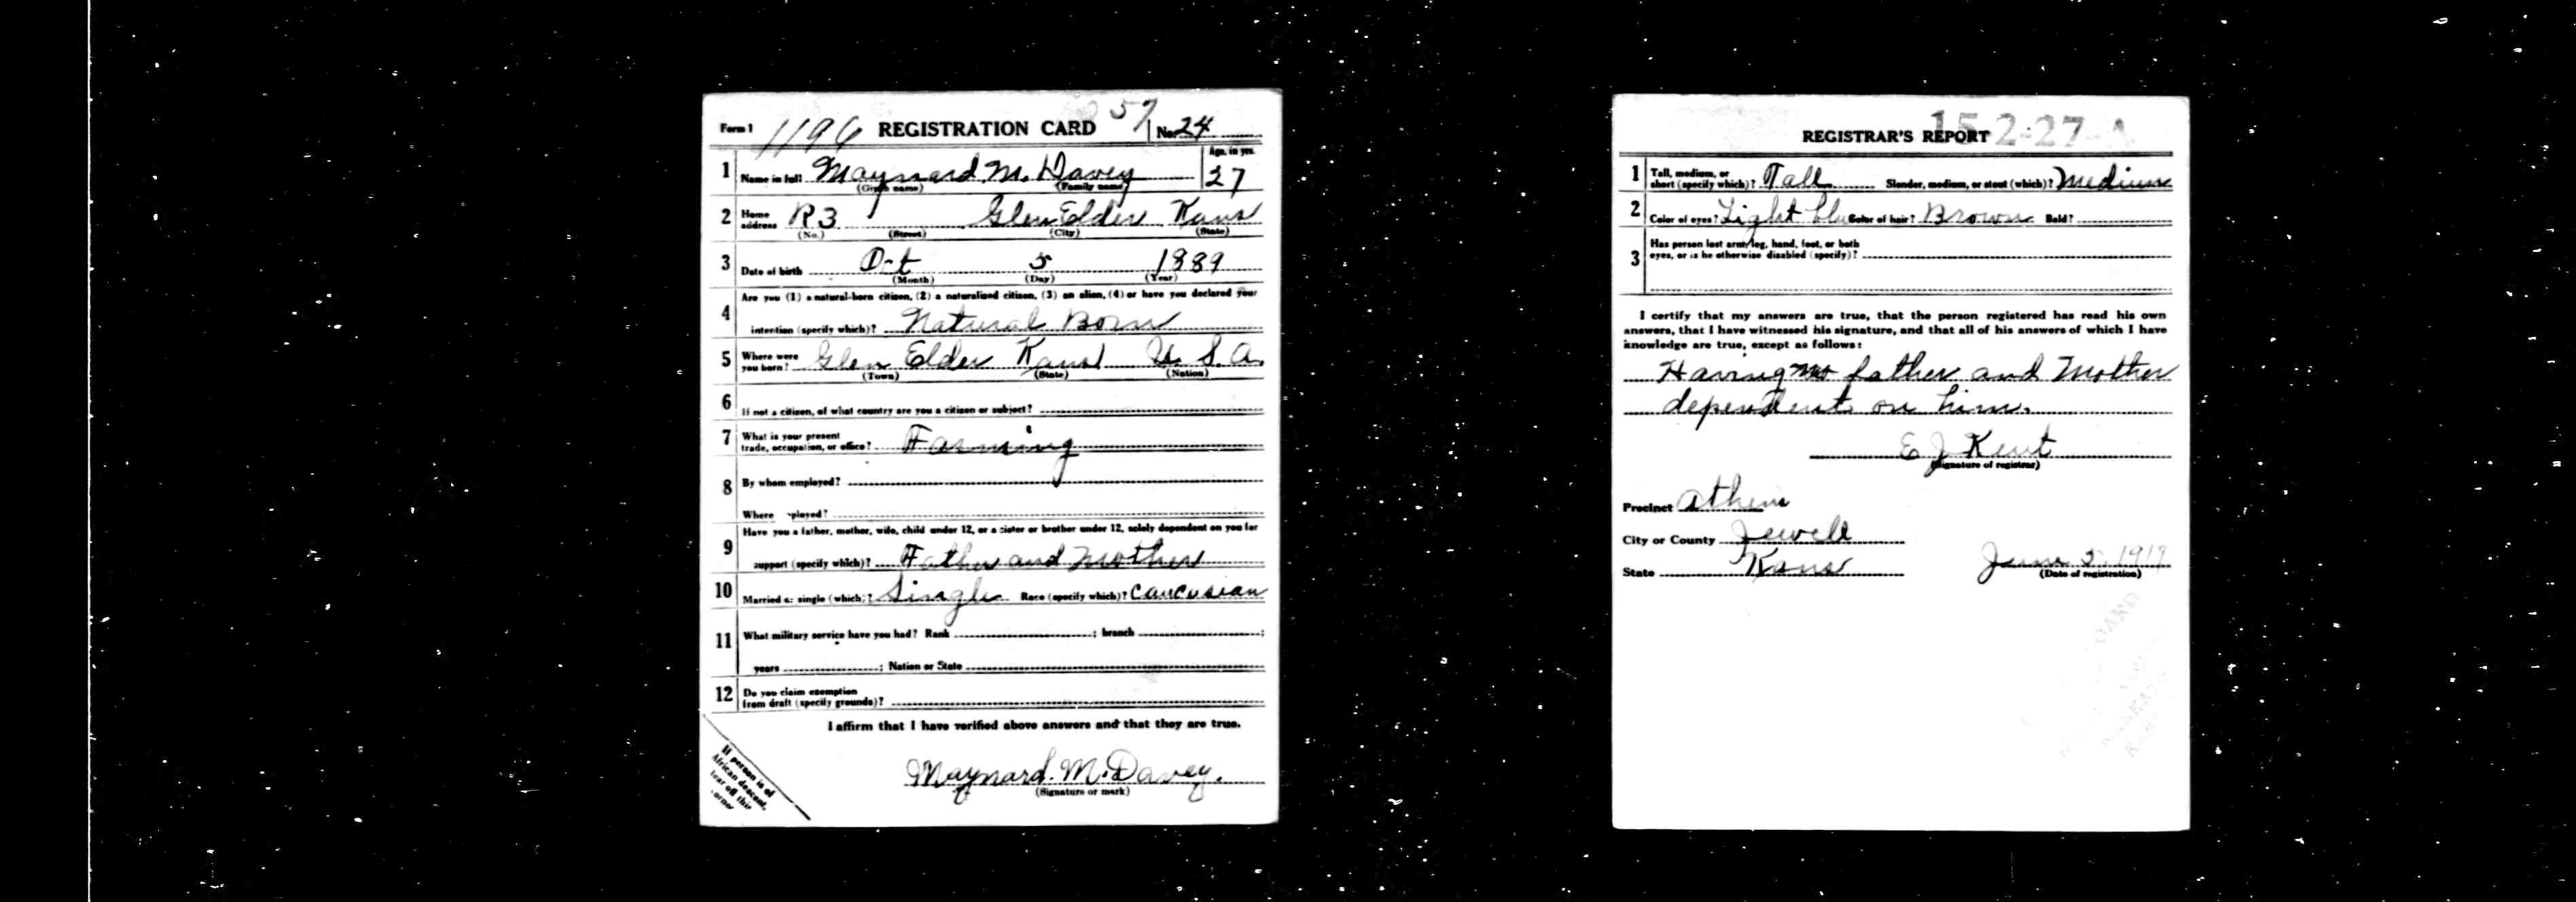 Form 1 1196 REGISTRATION CARD 57 No. 24
1 Name in full Maynard M. Davey Age, in yrs. 27
(Given name) (Family name)
2 Home address R3 Glen Elder Kans
(No.) (Street) (City) (State)
3 Date of birth Oct 5 1889
(Month) (Day) (Year)
4 Are you (1) a natural-born citizen, (2) a naturalized citizen, (3) an alien, (4) or have you declared your
intention (specify which)? Natural Born
5 Where were you born? Glen Elder Kans U.S.A.
(Town) (State) (Nation)
6 If not a citizen, of what country are you a citizen or subject?
7 What is your present
trade, occupation, or office? Farming
8 By whom employed?
Where ployed?
9 Have you a father, mother, wife, child under 12, or a sister or brother under 12, solely dependent on you for
support (specify which)? Father and Mother
10 Married or single (which)? Single Race (specify which)? Caucusian
11 What military service have you had? Rank ; branch ;
years ; Nation or State
12 Do you claim exemption
from draft (specify grounds)?
I affirm that I have verified above answers and that they are true.
Maynard. M. Davey.
(Signature or mark)
If person is of
African descent,
tear off this
corner
REGISTRAR'S REPORT 15 2-27-A
1 Tall, medium, or
short (specify which)? Tall Slender, medium, or stout (which)? Medium
2 Color of eyes? Light blu Color of hair? Brown Bald?
3 Has person lost arm, leg, hand, foot, or both
eyes, or is he otherwise disabled (specify)?
I certify that my answers are true, that the person registered has read his own
answers, that I have witnessed his signature, and that all of his answers of which I have
knowledge are true, except as follows:
Having father and Mother
dependent on him.
E J Kent
(Signature of registrar)
Precinct Athens
City or County Jewell
State Kans June 5, 1917
(Date of registration)